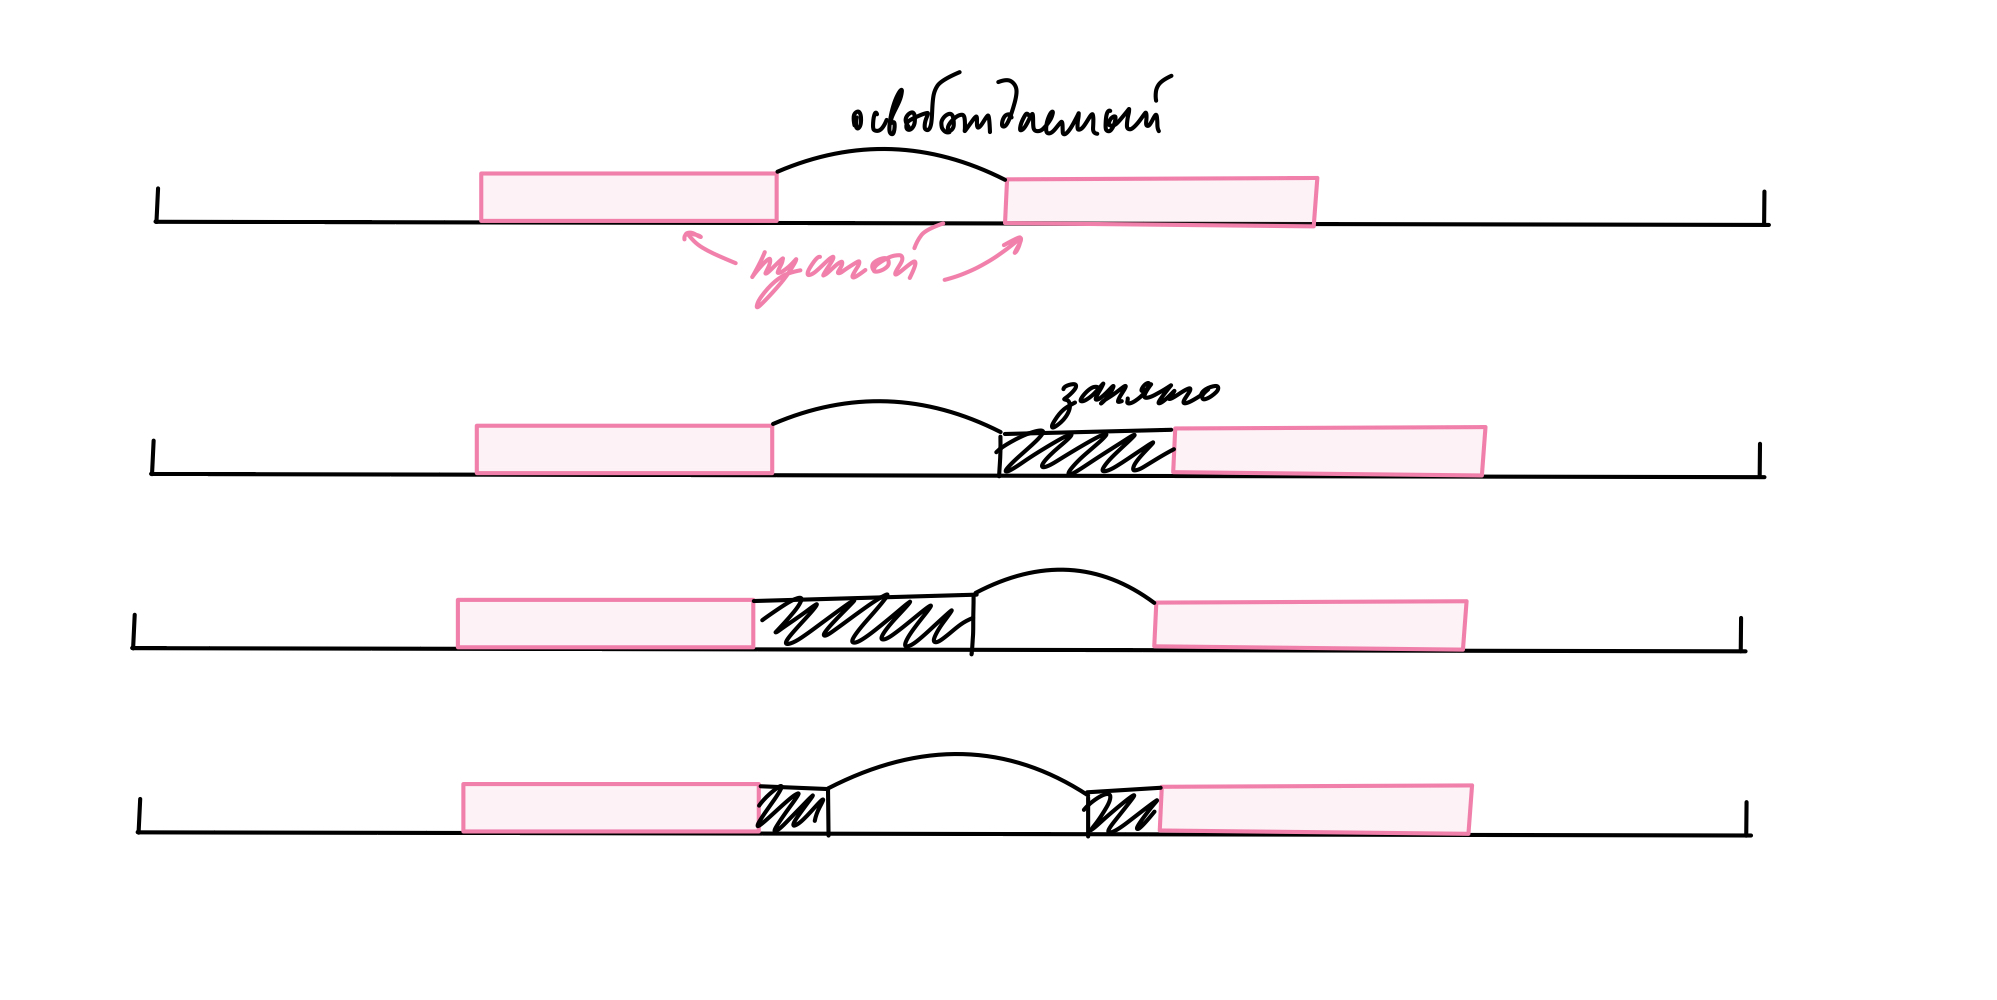 освобождаемый
пустой
занято